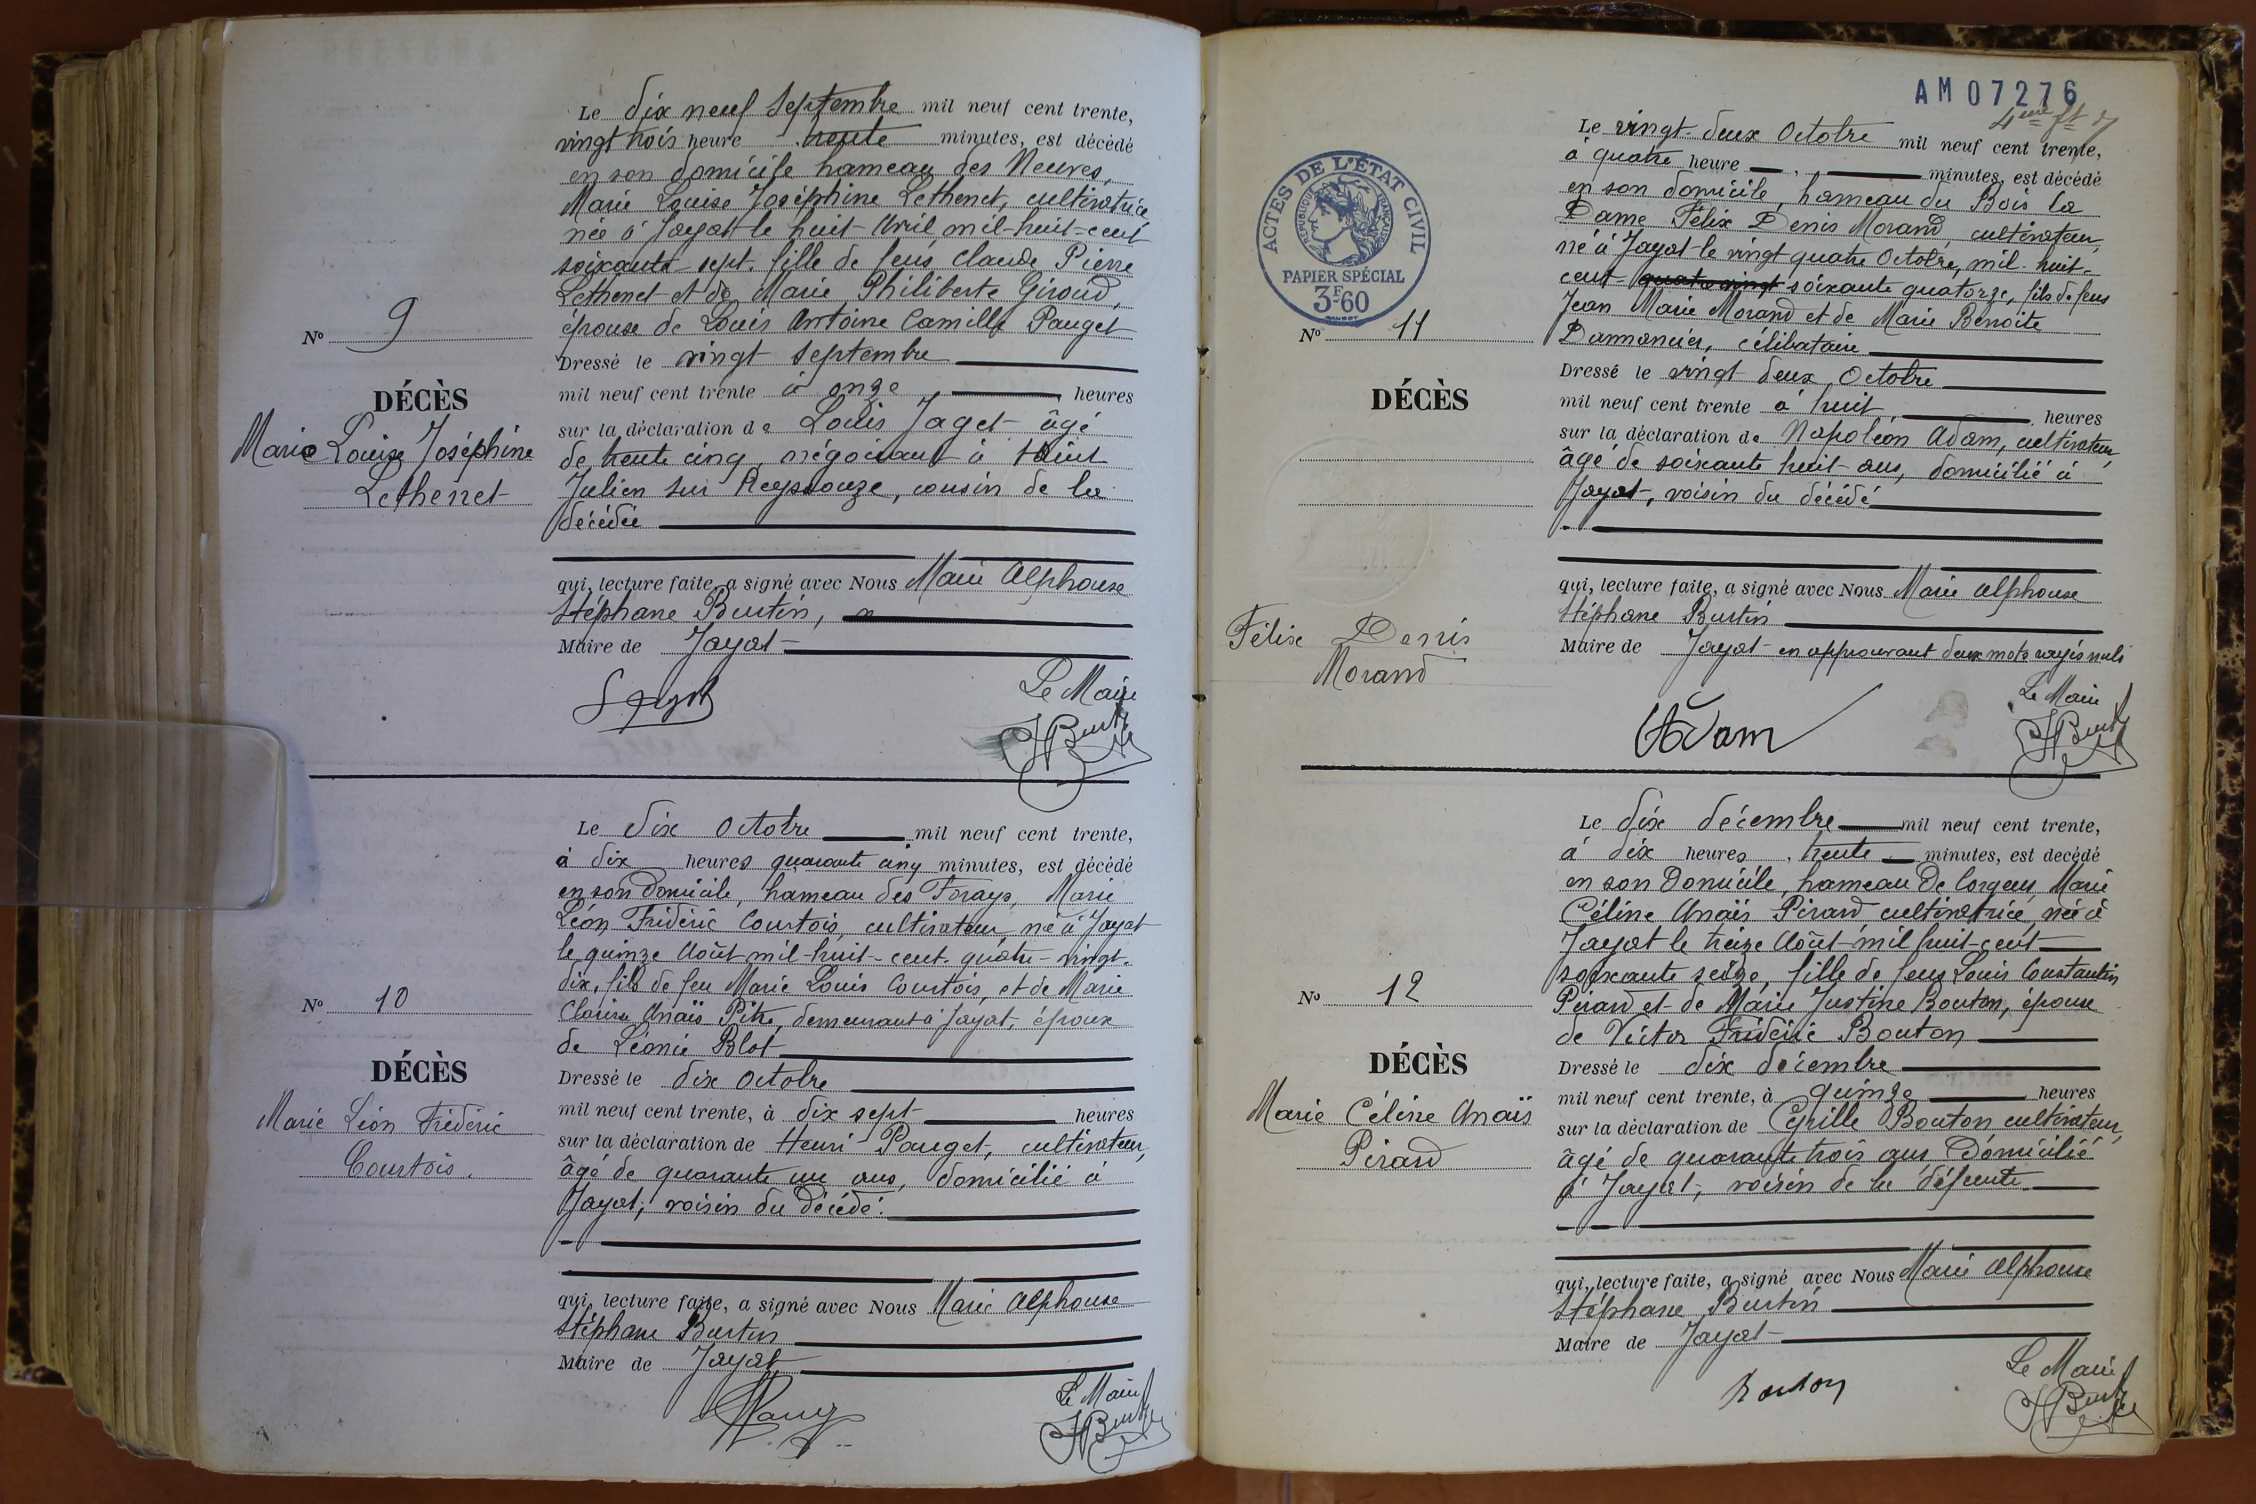 Le dix neuf Septembre mil neuf cent trente,
vingt trois heure trente minutes, est décédé
en son domicile hameau des Neuves,
Marie Louise Joséphine Lethenet, cultivatrice
née à Jayat le huit Avril mil-huit-cent
soixante-sept. fille de feus Claude Pierre
Lethenet et de Marie Philiberte Giroud,
épouse de Louis Antoine Camille Pauget
Nº 9
Dressé le vingt septembre
mil neuf cent trente à onze heures
DÉCÈS
sur la déclaration de Louis Jaget âgé
Marie Louise Joséphine
de trente cinq, négociant à Saint
Lethenet
Julien sur Reyssouze, cousin de la
décédée
qui, lecture faite, a signé avec Nous Marie Alphonse
Stéphane Burtin,
Maire de Jayat
Le Maire
Le dix Octobre mil neuf cent trente,
à dix heures quarante cinq minutes, est décédé
en son domicile, hameau des Forays, Marie
Léon Frédéric Courtois, cultivateur, né à Jayat
le quinze Août mil-huit-cent-quatre-vingt-
dix, fils de feu Marie Louis Courtois, et de Marie
Nº 10
Claire Anaïs Pitre, demeurant à Jayat, époux
de Léonie Blot
DÉCÈS
Dressé le dix Octobre
Marie Léon Frédéric
mil neuf cent trente, à dix sept heures
Courtois.
sur la déclaration de Henri Pauget, cultivateur,
âgé de quarante un ans, domicilié à
Jayat, voisin du décédé.
qui, lecture faite, a signé avec Nous Marie Alphonse
Stéphane Burtin
Maire de Jayat
Le Maire
AM07276
Le vingt-deux Octobre mil neuf cent trente,
à quatre heure minutes, est décédé
en son domicile, hameau du Bois la
Dame Félix Denis Morand, cultivateur,
né à Jayat le vingt quatre Octobre, mil-huit-
cent-quatre vingt soixante quatorze, fils de feus
Jean Marie Morand et de Marie Benoite
Dannancier, célibataire
ACTES DE L'ÉTAT CIVIL
RÉPUBLIQUE FRANÇAISE
PAPIER SPÉCIAL
3F60
Nº 11
Dressé le vingt deux Octobre
mil neuf cent trente à huit heures
DÉCÈS
sur la déclaration de Napoléon Adam, cultivateur,
âgé de soixante huit ans, domicilié à
Jayat, voisin du décédé
qui, lecture faite, a signé avec Nous Marie Alphonse
Stéphane Burtin
Félix Denis
Morand
Maire de Jayat en approuvant deux mots rayés nuls
Le Maire
Adam
Le dix décembre mil neuf cent trente,
à dix heures trente minutes, est decédé
en son Domicile, hameau De Corgeat, Marie
Céline Anaïs Pirard cultivatrice, née à
Jayat le treize Août mil huit-cent
soixante seize, fille de feus Louis Constantin
Nº 12
Pirard et de Marie Justine Bouton, épouse
de Victor Frédéric Bouton
DÉCÈS
Dressé le dix décembre
Marie Céline Anaïs
Pirard
mil neuf cent trente, à quinze heures
sur la déclaration de Cyrille Bouton cultivateur,
âgé de quarante trois ans Domicilié
à Jayat, voisin de la défunte
qui, lecture faite, a signé avec Nous Marie Alphonse
Stéphane Burtin
Maire de Jayat
Le Maire
Bouton